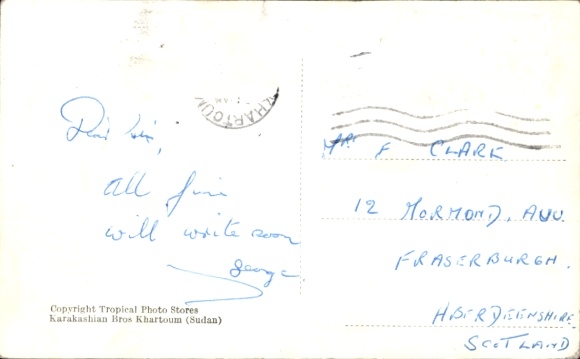 KHARTOUM
Dear Sir,
All fine
will write soon
George
Copyright Tropical Photo Stores
Karakashian Bros Khartoum (Sudan)
Mr F CLARK
12 MORMOND, AVU.
FRASERBURGH.
ABERDEENSHIRE
SCOTLAND